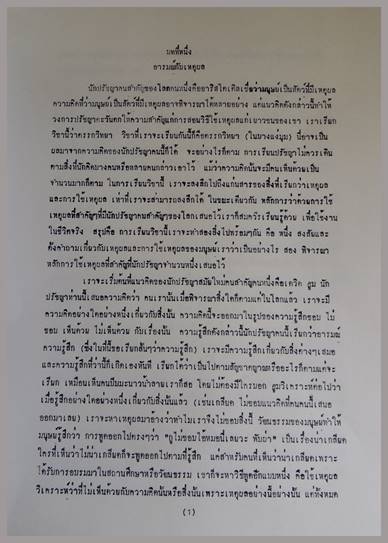 บทที่หนึ่ง
อารมณ์กับเหตุผล
นักปรัชญาคนสำคัญของโลกคนหนึ่งคืออาริสโตเติลเชื่อว่ามนุษย์เป็นสัตว์ที่มีเหตุผล
ความคิดที่ว่ามนุษย์เป็นสัตว์ที่มีเหตุผลอาจพิจารณาได้หลายอย่าง แต่แนวคิดดังกล่าวนี้ทำให้
วงการปรัชญาตะวันตกให้ความสำคัญแก่การสอนวิธีใช้เหตุผลแก่เยาวชนของเขา เราเรียก
วิชานี้ว่าตรรกวิทยา วิชาที่เราจะเรียนกันนี้ก็คือตรรกวิทยา (ในบางแง่มุม) นี่อาจเป็น
ผลมาจากความคิดของนักปรัชญาคนนี้ก็ได้ จะอย่างไรก็ตาม การเรียนปรัชญาไม่ควรเห็น
ตามสิ่งที่นักคิดบางคนหรือหลายคนกล่าวเอาไว้ แม้ว่าความคิดนั้นจะมีคนเห็นด้วยเป็น
จำนวนมากก็ตาม ในการเรียนวิชานี้ เราจะลงลึกไปถึงแก่นสารของสิ่งที่เรียกว่าเหตุผล
และการใช้เหตุผล เท่าที่เราจะสามารถลงลึกได้ ในขณะเดียวกัน หลักการว่าด้วยการใช้
เหตุผลที่สำคัญๆที่มีนักปรัชญาคนสำคัญของโลกเสนอไว้เราก็สมควรเรียนรู้ด้วย เพื่อใช้งาน
ในชีวิตจริง สรุปคือ การเรียนวิชานี้เราจะทำสองสิ่งไปพร้อมๆกัน คือ หนึ่ง สงสัยและ
ตั้งคำถามเกี่ยวกับเหตุผลและการใช้เหตุผลของมนุษย์เราว่าเป็นอย่างไร สอง พิจารณา
หลักการใช้เหตุผลที่สำคัญที่มีนักปรัชญาจำนวนหนึ่งเสนอไว้
เราจะเริ่มต้นที่แนวคิดของนักปรัชญาสมัยใหม่คนสำคัญคนหนึ่งคือเดวิด ฮูม นัก
ปรัชญาท่านนี้เสนอความคิดว่า คนเรานั้นเมื่อพิจารณาสิ่งใดก็ตามแต่ในโลกแล้ว เราจะมี
ความคิดอย่างใดอย่างหนึ่งเกี่ยวกับสิ่งนั้น ความคิดนี้จะออกมาในรูปของความรู้สึกชอบ ไม่
ชอบ เห็นด้วย ไม่เห็นด้วย กับเรื่องนั้น ความรู้สึกดังกล่าวนี้นักปรัชญาคนนี้เรียกว่าอารมณ์
ความรู้สึก (ซึ่งในที่นี้ขอเรียกสั้นๆว่าความรู้สึก) เราจะมีความรู้สึกเกี่ยวกับสิ่งต่างๆเสมอ
และความรู้สึกที่ว่านี้ก็เกิดเองทันที เรียกได้ว่าเป็นไปตามสัญชาตญาณหรืออะไรก็ตามแต่จะ
เรียก เหมือนเห็นคนปีนมะนาวน้ำลายเราก็สอ โดยไม่ต้องมีใครบอก ฮูมวิเคราะห์ต่อไปว่า
เมื่อรู้สึกอย่างใดอย่างหนึ่งเกี่ยวกับสิ่งนั้นแล้ว (เช่นเกลียด ไม่ชอบแนวคิดที่คนคนนี้เสนอ
ออกมาเลย) เราจะหาเหตุผลมาอ้างว่าทำไมเราจึงไม่ชอบสิ่งนี้ วัฒนธรรมของมนุษย์ทำให้
มนุษย์รู้สึกว่า การพูดออกไปตรงๆว่า เป็นเรื่องน่าเกลียด
ใครที่เห็นว่าไม่น่าเกลียดก็จะพูดออกไปตามที่รู้สึก แต่สำหรับคนที่เห็นว่าน่าเกลียดเพราะ
ได้รับการอบรมมาในสถานศึกษาหรือวัฒนธรรม เขาก็จะหาวิธีพูดอีกแบบหนึ่ง คือใช้เหตุผล
วิเคราะห์ว่าที่ไม่เห็นด้วยกับความคิดนั้นหรือสิ่งนั้นเพราะเหตุผลอย่างนี้อย่างนั้น แต่ทั้งหมด
(1)